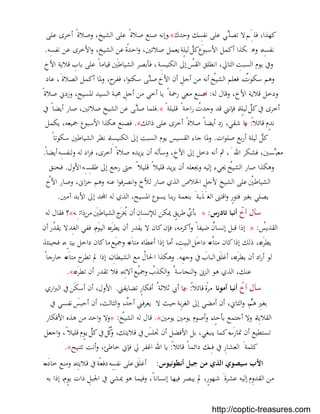 كهذا، فلِمَ لا تصلّي على نفسك وحدك؟» وإنه صنع صلاةً على الشيخ، وصلاةً أخرى على
نفسه. وهو هكذا أكمل الأسبوعَ كلَّ ليلةٍ يعمل صلاتين، واحدةً عن الشيخ، والأخرى عن نفسه.
وفي يوم السبت التالي، انطلق القس إلى الكنيسة، فأبصر الشياطين قياماً على باب قلاية الأخ
وهم سكوتٌ، فعلم الشيخ أنه من أجل أن الأخ صلَّى سكتوا، ففرح. ولمَّا أكمل الصلاة، عاد
ودخل قلاية الأخ، وقال له: «اصنع معي رحمةً يا أخي من أجلِ محبة السيد المسيح، وزِدني صلاةً
أخرى في كلِّ ليلةٍ فإنني قد وجدتُ راحةً قليلةً». فلما صلَّى عن الشيخ صلاتين، صار أيضاً في
ندمٍ قائلاً: «يا شقي، زد أيضاً صلاةً أخرى على ذاتك». فصنع هكذا الأسبوع جميعه، يكمل
كلَّ ليلةٍ أربع صلوات. ولما جاء القسيس يوم السبت إلى الكنيسة، نظر الشياطين سكوتاً
معبَّسين، فشكر اللهَ، ثم أنه دخل إلى الأخ، وسأله أن يزيده صلاةً أخرى، فزاد له ولنفسِه أيضاً.
وهكذا صار الشيخ يجيء إليه ويجعله أن يزيد قليلاً قليلاً حتى رجع إلى طقسِه الأول. فحنق
الشياطينُ على الشيخ لأجلِ الخلاص الذي صار للأخ وانصرفوا عنه وهم خزايى، وصار الأخُ
يصلي بغير فتورٍ واقتنى الغلبةَ بنعمة ربنا يسوع المسيح، الذي له المجد إلى الأبدِ آمين.
سأل أخٌ أنبا تادرس: «بأيِّ طريقٍ يمكن للإنسان أن يُخرِجَ الشياطين من ذاتِهِ»؟ فقال له
القديس: «إذا قبل إنسانٌ ضيفاً وأكرمه، فإن كان لا يقدر أن يطرده اليوم، ففي الغد لا يقدُر أن
يطرده، ذلك إذا كان متاعُه داخل البيت، أما إذا أعطاه متاعَه وجميعَ ما كان داخل بيته، فحينئذ
لو أراد أن يطرده، أغلق البابَ في وجهه. وهكذا الحال مع الشيطان، إذا لم تطرح متاعَه خارجاً
عنك، الذي هو الزنى والنجاسةُ والكذب وجميع آلاته، فلا تقدر أن تطردَه».
سأل أخٌ أنبا أمونا مرةً قائلاً: «يا أبي ثلاثةُ أفكارٍ تضايقني. الأول، أن أسكن في البراري
بغير همٍّ، والثاني، أن أمضي إلى الغربة حيث لا يعرفني أحدٌ، والثالث، أن أحبس نفسي في
القلاية ولا أجتمع بأحدٍ وأصوم يومين يومين». قال له الشيخ: «ولا واحد من هذه الأفكار
تستطيع أن تمارسَه كما ينبغي، بل الأفضل أن تجلس في قلايتِك، وكُل في كلِّ يومٍ قليلاً، واجعل
كلمةَ العشارِ في فمِك دائماً قائلاً: يا الله اغفر لي فإني خاطئ، وأنت تتنيح».
الأب سيصوي الذي من جبلِ أنطونيوس: أغلق على نفسِه دفعةً في قلايتِه، ومنع خادمَه
من القدومِ إليه عشرةَ شهورٍ، لم يبصر فيها إنساناً، وفيما هو يمشي في الجبل ذات يومٍ، إذا به
http://coptic-treasures.com